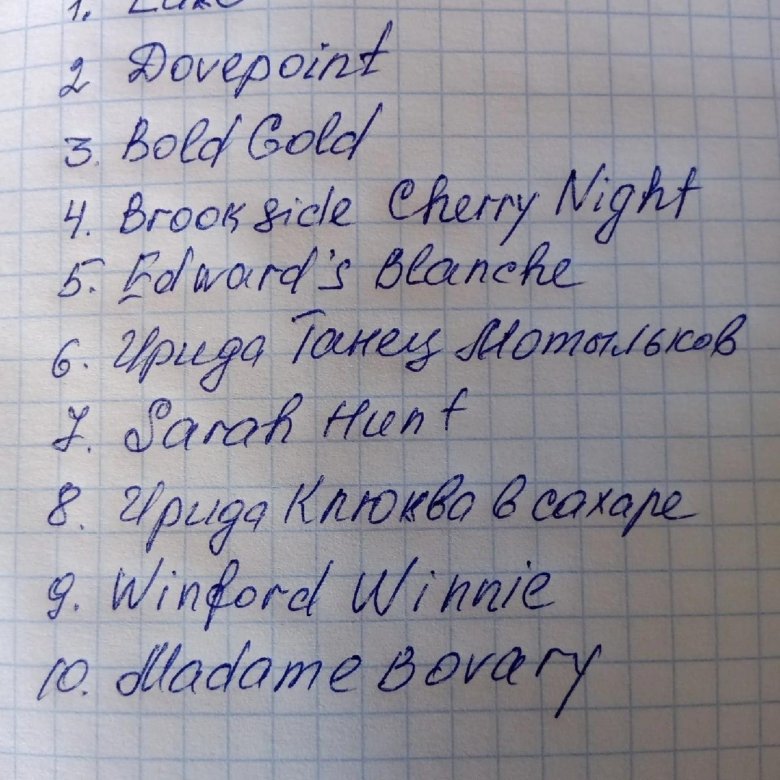 1.
2 Dovepoint
3. Bold Gold
4. Brookside Cherry Night
5. Edward's Blanche
6. Ирида Танец Мотыльков
7. Sarah Hunt
8. Ирида Клюква в сахаре
9. Winford Winnie
10. Madame Bovary